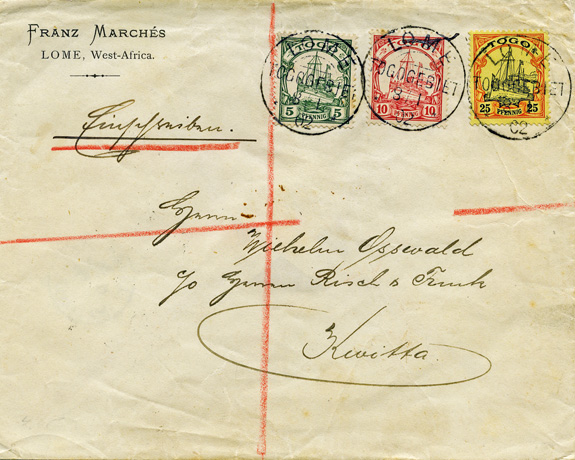 FRANZ MARCHÉS
LOME, West-Africa.
TOGO
5 5
PFENNIG
TOGO
10 10
PFENNIG
TOGO
25 25
PFENNIG
LOME
TOGOGEBIET
02
LOME
TOGOGEBIET
02
LOME
TOGOGEBIET
02
Einschreiben.
Herrn
Wilhelm Osswald
c/o Herren Risch &
Kwitta.